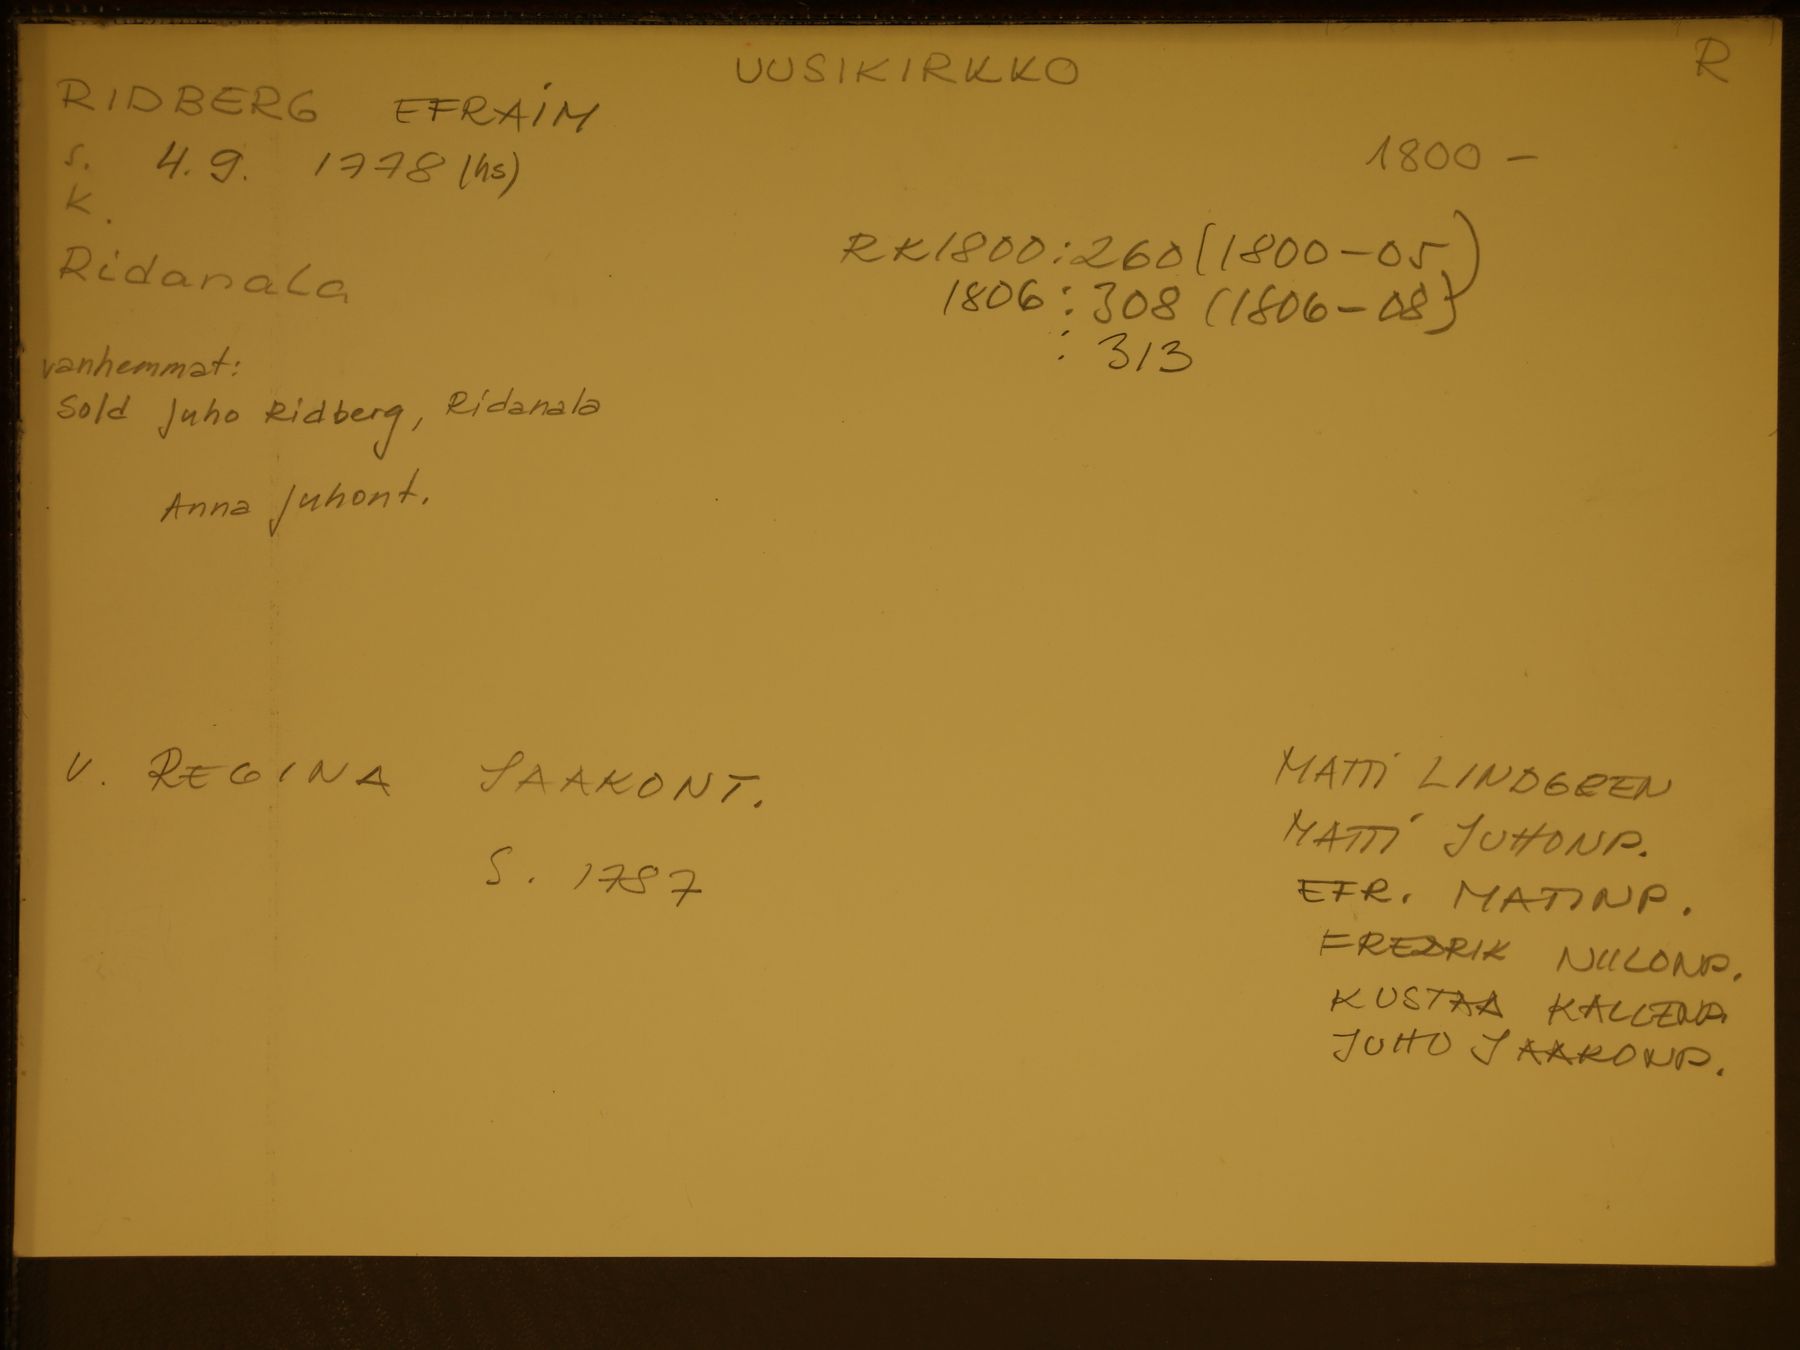 UUSIKIRKKO
R
RIDBERG EFRAIM
s. 4.9. 1778 (hs)
1800 -
K.
RK1800:260 (1800-05)
Ridanala
1806:308 (1806-08)
:313
vanhemmat:
Sold Juho Ridberg, Ridanala
Anna Juhont.
V. REGINA JAAKONT.
S. 1787
MATTI LINDGREN
MATTI JUHONP.
EFR. MATINP.
FREDRIK NIILONP.
KUSTAA KALLENP.
JUHO JAAKONP.